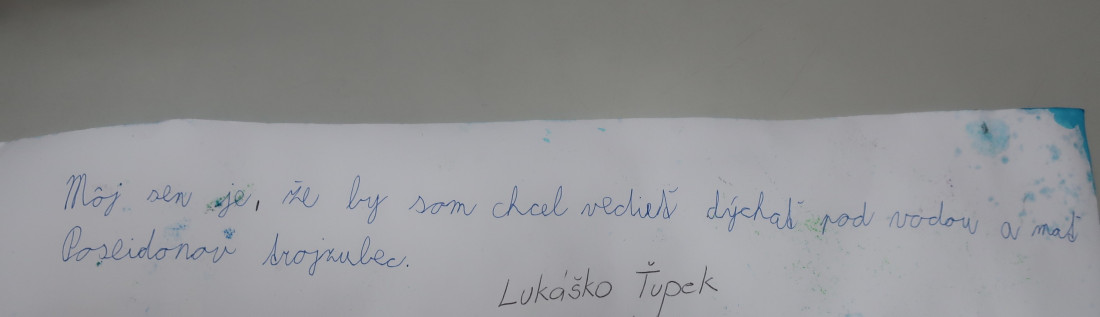 Môj sen je, že by som chcel vedieť dýchať pod vodou a mať
Poseidonov trojzubec.
Lukáško Ťupek